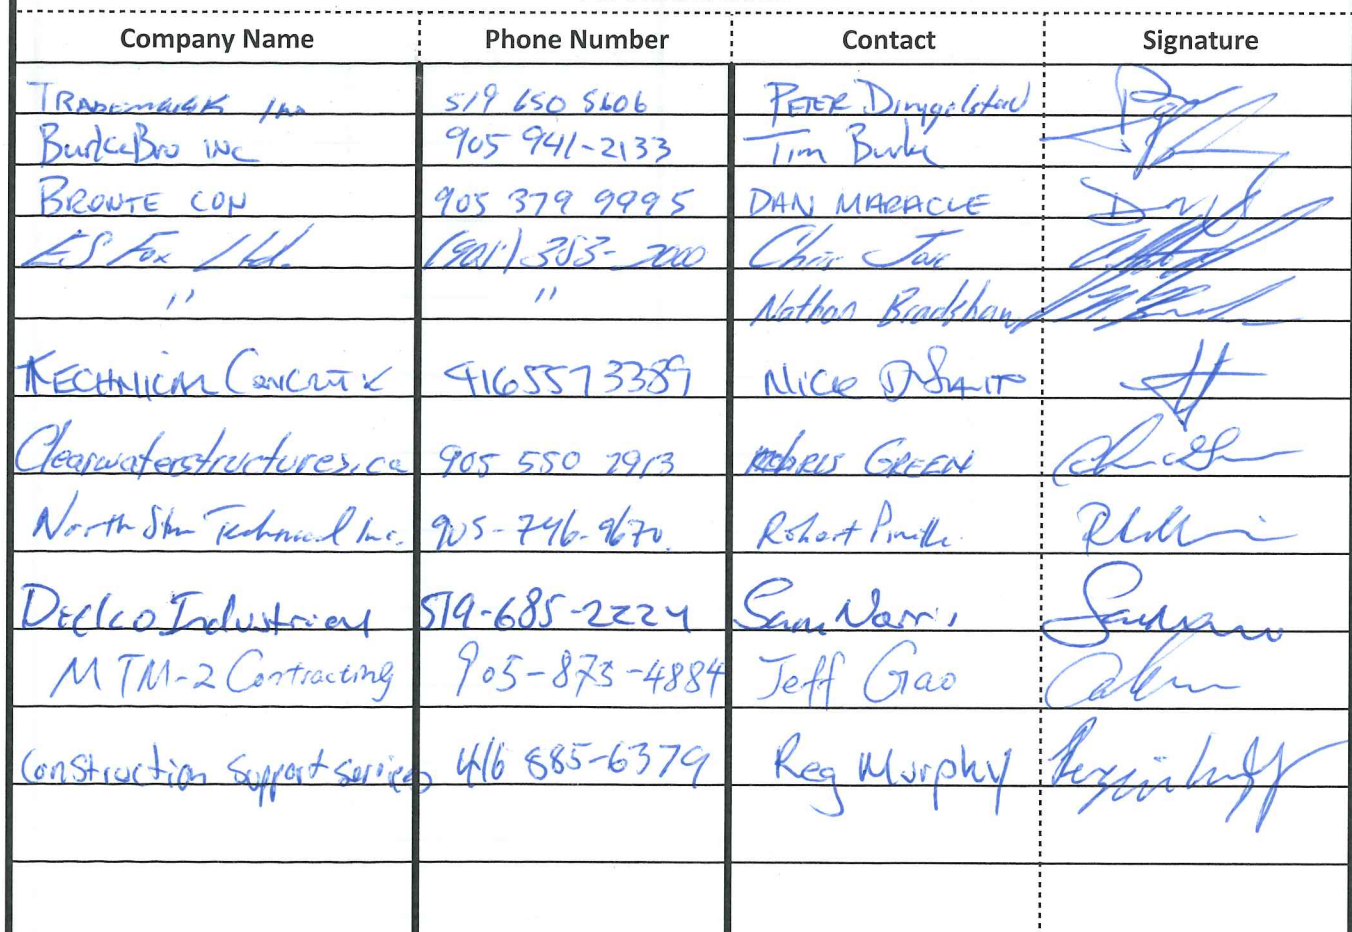 Company Name Phone Number Contact Signature
TRADEMARK Inc 519 650 5606 PETER
BurkeBro INC 905 941-2133 Tim Burke
BRONTE CON 905 379 9995 DAN MARACLE
ES Fox Ltd. (905) 353-2000 Chris
" " Nathan Bradshaw
TECHNICAL CONCRETE 4165573389 NICK
Clearwaterstructures.ca 905 550 2913 CHRIS GREEN
North Star Technical Inc. 905-746-9670 Robert
Delco Industrial 519-685-2224 Sam Norris
MTM-2 Contracting 905-873-4884 Jeff Gao
Construction Support Services 416 885-6379 Reg Murphy